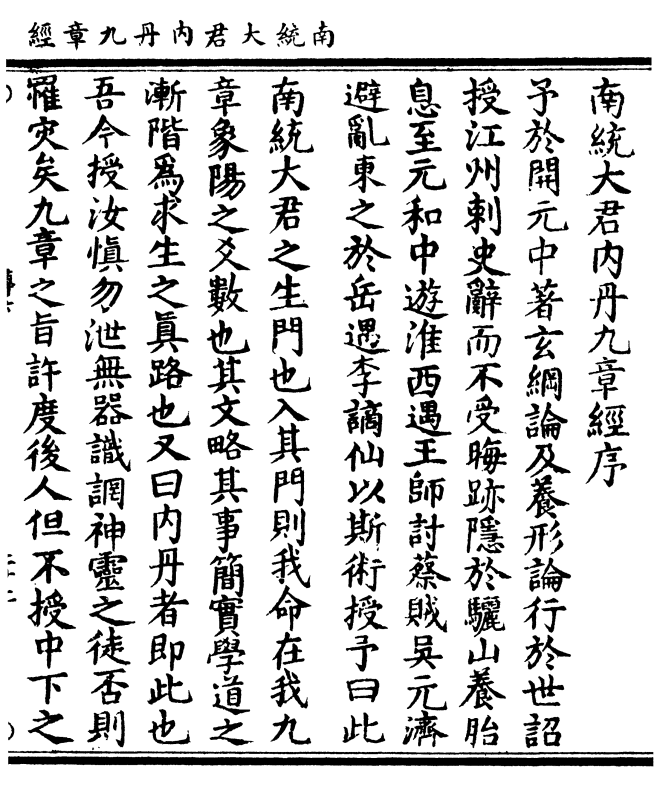 南統大君內丹九章經
南統大君內丹九章經序
予於開元中著玄綱論及養形論行於世詔
授江州刺史辭而不受晦跡隱於驪山養胎
息至元和中遊淮西遇王師討蔡賊吴元濟
避亂東之於岳遇李謫仙以斯術授予曰此
南統大君之生門也入其門則我命在我九
章象陽之爻數也其文略其事簡實學道之
漸階爲求生之眞路也又曰内丹者即此也
吾今授汝愼勿泄無器識誷神靈之徒否則
罹灾矣九章之旨許度後人但不授中下之